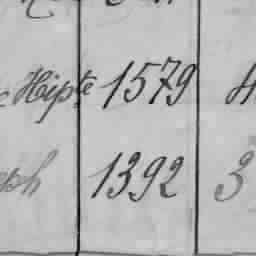 Hipte 1579 4
1392 3